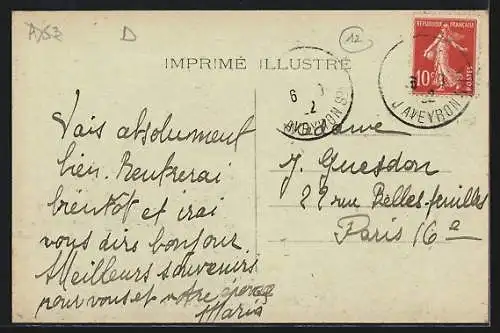 D
12
IMPRIMÉ ILLUSTRÉ
RÉPUBLIQUE FRANÇAISE
10c
POSTES
6
2
AVEYRON
6
32
AVEYRON
Vais absolument
bien. Rentrerai
bientôt et irai
vous dire bonjour.
Meilleurs souvenirs
pour vous et votre
Maria
Madame
J. Guesdon
22 rue Belles-feuilles
Paris 16e